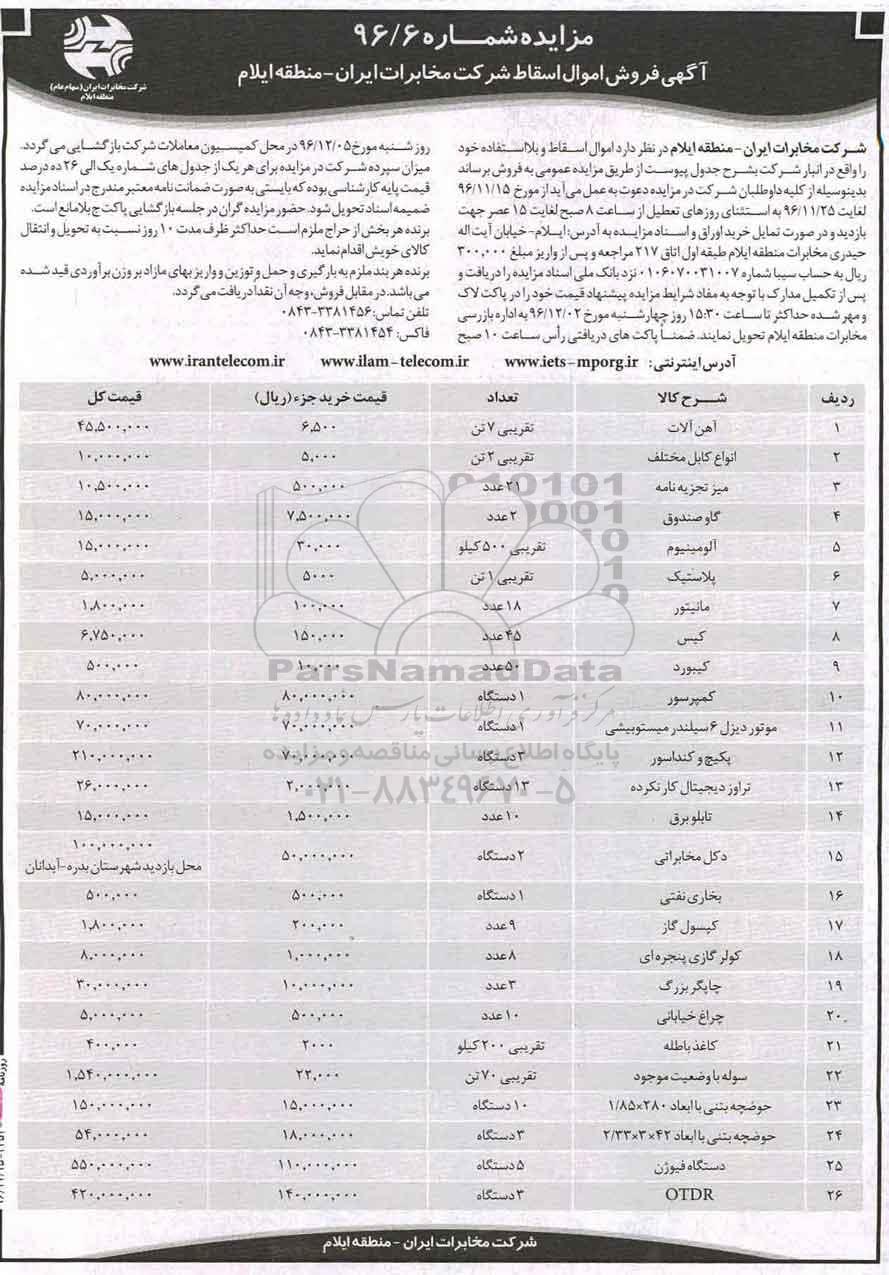 مزایده شماره ۹۶/۶
آگهی فروش اموال اسقاط شرکت مخابرات ایران - منطقه ایلام
شرکت مخابرات ایران (سهام عام)
منطقه ایلام
شرکت مخابرات ایران - منطقه ایلام در نظر دارد اموال اسقاط و بلااستفاده خود
را واقع در انبار شرکت بشرح جدول پیوست از طریق مزایده عمومی به فروش برساند
بدینوسیله از کلیه داوطلبان شرکت در مزایده دعوت به عمل می‌آید از مورخ ۹۶/۱۱/۱۵
لغایت ۹۶/۱۱/۲۵ به استثنای روزهای تعطیل از ساعت ۸ صبح لغایت ۱۵ عصر جهت
بازدید و در صورت تمایل خرید اوراق و اسناد مزایده به آدرس: ایلام- خیابان آیت اله
حیدری مخابرات منطقه ایلام طبقه اول اتاق ۲۱۷ مراجعه و پس از واریز مبلغ ۳۰۰,۰۰۰
ریال به حساب سیبا شماره ۰۱۰۶۰۷۰۰۳۱۰۰۷ نزد بانک ملی اسناد مزایده را دریافت و
پس از تکمیل مدارک با توجه به مفاد شرایط مزایده پیشنهاد قیمت خود را در پاکت لاک
و مهر شده حداکثر تا ساعت ۱۵:۳۰ روز چهارشنبه مورخ ۹۶/۱۲/۰۲ به اداره بازرسی
مخابرات منطقه ایلام تحویل نمایند. ضمناً پاکت های دریافتی رأس ساعت ۱۰ صبح
روز شنبه مورخ ۹۶/۱۲/۰۵ در محل کمیسیون معاملات شرکت بازگشایی می گردد.
میزان سپرده شرکت در مزایده برای هر یک از جدول های شماره یک الی ۲۶ ده درصد
قیمت پایه کارشناسی بوده که بایستی به صورت ضمانت نامه معتبر مندرج در اسناد مزایده
ضمیمه اسناد تحویل شود. حضور مزایده گران در جلسه بازگشایی پاکت ج بلامانع است.
برنده هر بخش از حراج ملزم است حداکثر ظرف مدت ۱۰ روز نسبت به تحویل و انتقال
کالای خویش اقدام نماید.
برنده هر بند ملزم به بارگیری و حمل و توزین و واریز بهای مازاد بر وزن برآوردی قید شده
می باشد. در مقابل فروش، وجه آن نقدا دریافت می گردد.
تلفن تماس: ۳۳۸۱۴۵۶-۰۸۴۳
فاکس: ۳۳۸۱۴۵۴-۰۸۴۳
آدرس اینترنتی: www.iets-mporg.ir www.ilam-telecom.ir www.irantelecom.ir
ردیف شـــرح کالا تعداد قیمت خرید جزء (ریال) قیمت کل
۱ آهن آلات تقریبی ۷ تن ۶,۵۰۰ ۴۵,۵۰۰,۰۰۰
۲ انواع کابل مختلف تقریبی ۲ تن ۵,۰۰۰ ۱۰,۰۰۰,۰۰۰
۳ میز تجزیه نامه ۲۱ عدد ۵۰۰,۰۰۰ ۱۰,۵۰۰,۰۰۰
۴ گاوصندوق ۲ عدد ۷,۵۰۰,۰۰۰ ۱۵,۰۰۰,۰۰۰
۵ آلومینیوم تقریبی ۵۰۰ کیلو ۳۰,۰۰۰ ۱۵,۰۰۰,۰۰۰
۶ پلاستیک تقریبی ۱ تن ۵۰۰۰ ۵,۰۰۰,۰۰۰
۷ مانیتور ۱۸ عدد ۱۰۰,۰۰۰ ۱,۸۰۰,۰۰۰
۸ کیس ۴۵ عدد ۱۵۰,۰۰۰ ۶,۷۵۰,۰۰۰
۹ کیبورد ۵۰ عدد ۱۰,۰۰۰ ۵۰۰,۰۰۰
۱۰ کمپرسور ۱ دستگاه ۸۰,۰۰۰,۰۰۰ ۸۰,۰۰۰,۰۰۰
۱۱ موتور دیزل ۶ سیلندر میستوبیشی ۱ دستگاه ۷۰,۰۰۰,۰۰۰ ۷۰,۰۰۰,۰۰۰
۱۲ پکیچ و کنداسور ۳ دستگاه ۷۰,۰۰۰,۰۰۰ ۲۱۰,۰۰۰,۰۰۰
۱۳ تراوز دیجیتال کار نکرده ۱۳ دستگاه ۲,۰۰۰,۰۰۰ ۲۶,۰۰۰,۰۰۰
۱۴ تابلو برق ۱۰ عدد ۱,۵۰۰,۰۰۰ ۱۵,۰۰۰,۰۰۰
۱۵ دکل مخابراتی ۲ دستگاه ۵۰,۰۰۰,۰۰۰ ۱۰۰,۰۰۰,۰۰۰
محل بازدید شهرستان بدره-آبدانان
۱۶ بخاری نفتی ۱ دستگاه ۵۰۰,۰۰۰ ۵۰۰,۰۰۰
۱۷ کپسول گاز ۹ عدد ۲۰۰,۰۰۰ ۱,۸۰۰,۰۰۰
۱۸ کولر گازی پنجره ای ۸ عدد ۱,۰۰۰,۰۰۰ ۸,۰۰۰,۰۰۰
۱۹ چاپگر بزرگ ۳ عدد ۱۰,۰۰۰,۰۰۰ ۳۰,۰۰۰,۰۰۰
۲۰ چراغ خیابانی ۱۰ عدد ۵۰۰,۰۰۰ ۵,۰۰۰,۰۰۰
۲۱ کاغذ باطله تقریبی ۲۰۰ کیلو ۲۰۰۰ ۴۰۰,۰۰۰
۲۲ سوله با وضعیت موجود تقریبی ۷۰ تن ۲۲,۰۰۰ ۱,۵۴۰,۰۰۰,۰۰۰
۲۳ حوضچه بتنی با ابعاد ۲۸۰×۱/۸۵ ۱۰ دستگاه ۱۵,۰۰۰,۰۰۰ ۱۵۰,۰۰۰,۰۰۰
۲۴ حوضچه بتنی با ابعاد ۴۲×۳×۲/۳۳ ۳ دستگاه ۱۸,۰۰۰,۰۰۰ ۵۴,۰۰۰,۰۰۰
۲۵ دستگاه فیوژن ۵ دستگاه ۱۱۰,۰۰۰,۰۰۰ ۵۵۰,۰۰۰,۰۰۰
۲۶ OTDR ۳ دستگاه ۱۴۰,۰۰۰,۰۰۰ ۴۲۰,۰۰۰,۰۰۰
ParsNamadData
مرکز فرآوری اطلاعات پارس نماد داده ها
پایگاه اطلاع رسانی مناقصه و مزایده
۰۲۱-۸۸۳۴۹۶۷۰-۵
شرکت مخابرات ایران - منطقه ایلام